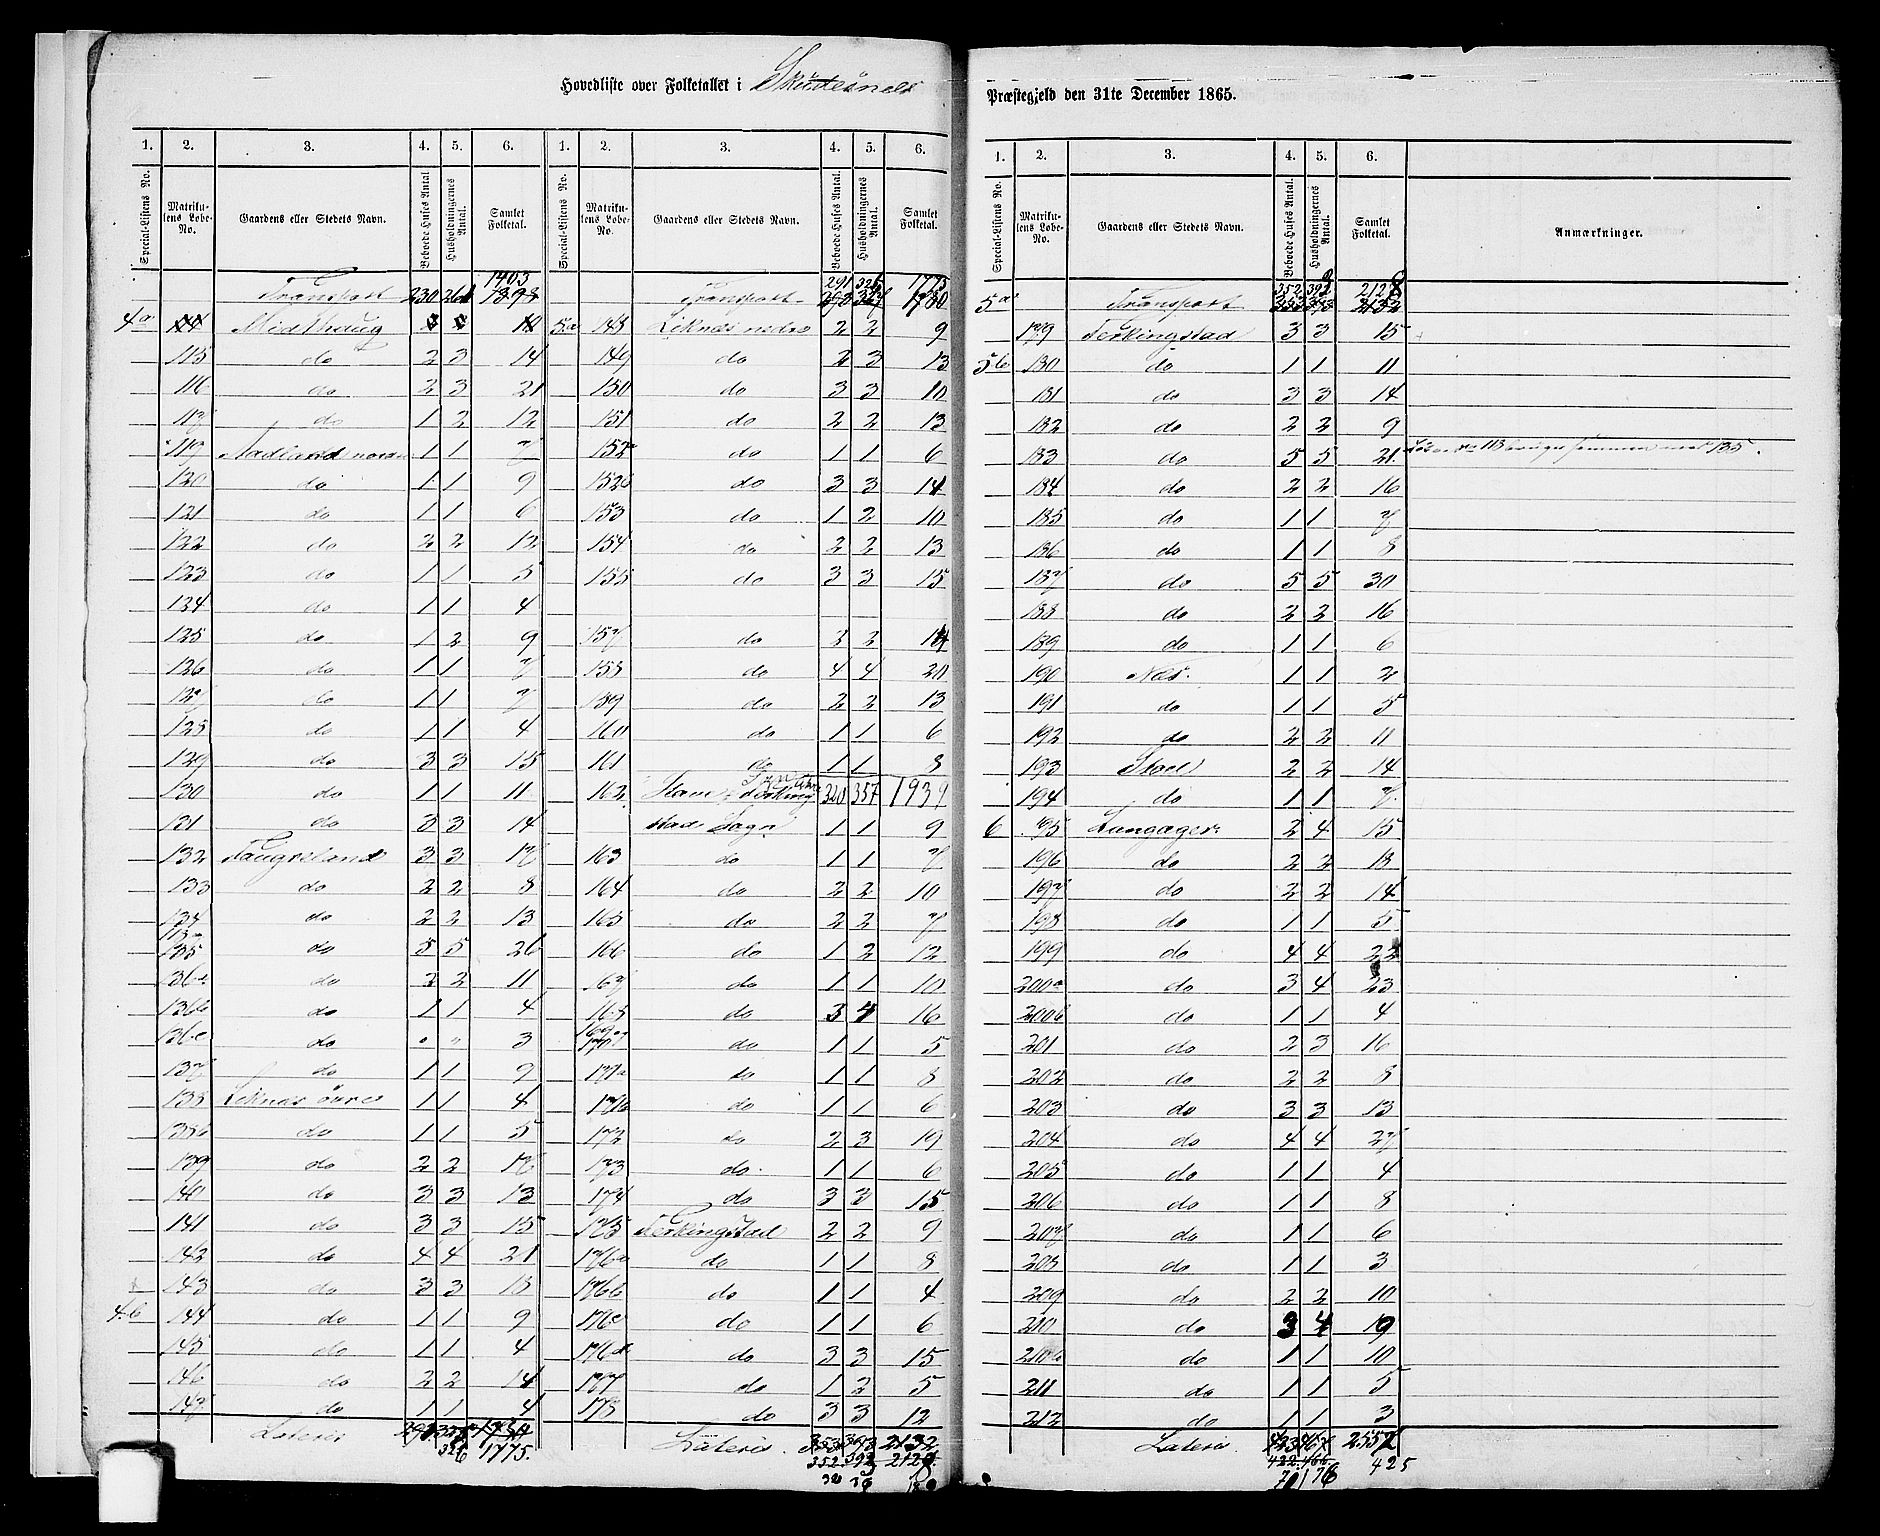 Hovedliste over Folketallet i Skudesnes
1. 2. 3. 4. 5. 6. 1. 2. 3. 4. 5. 6.
Special-Listens No. Matrikulens Løbe-No. Gaardens eller Stedets Navn. Beboede Huses Antal Husholdningernes Antal. Samlet Folketal. Special-Listens No. Matrikulens Løbe-No. Gaardens eller Stedets Navn. Beboede Huses Antal. Husholdningernes Antal. Samlet Folketal.
1403 291 326 1775
Transport 230 261 Transport
4a Midthaug 5a 148 Liknes nedre 2 2 9
115 do 2 3 14 149 do 2 3 13
116 do 2 3 21 150 do 3 3 10
117 do 1 2 12 151 do 2 2 13
119 Aadland nordre 1 1 7 152a do 1 1 6
120 do 1 1 9 152b do 3 3 14
121 do 1 1 6 153 do 1 2 10
122 do 2 2 12 154 do 2 2 13
123 do 1 1 5 155 do 3 3 15
124 do 1 1 4
125 do 1 2 9 157 do
126 do 1 1 7 158 do 4 4 20
127 do 1 1 7 159 do 2 2 13
128 do 1 1 4 160 do 1 1 6
129 do 3 3 15 161 do 1 1 8
130 do 1 1 11 162 320 357 1939
131 do 3 3 14 stad Sogn 1 1 9
132 Taugreland 3 3 17 163 do 1 1 7
133 do 2 2 8 164 do 2 2 10
134 do 2 2 13 165 do 2 2 7
113a
135 do 5 5 26 166 do 1 2 12
136a do 2 11 167 do 1 1 10
136b do 1 1 4 168 do 3 4 16
136c do " " 3 169 170 do 1 1 5
137 do 1 1 9 171a do 1 1 8
138 Liknes øvre 1 1 4 171b do 1 1 6
138b do 1 1 5 172 do 2 3 19
139 do 2 2 17 173 do. 1 1 6
140 do 3 3 13 174 do 3 3 15
141 do 3 3 15 175 Ferkingstad 2 2 9
142 do 4 4 21 176a do 1 1 8
143 do 3 3 18 176b do 1 1 4
4b 144 do 1 1 9 176c do 1 1 6
145 do 1 1 4 176d do 3 3 15
146 do 2 2 14 177 do 1 2 5
147 do 1 1 4 178 do 3 3 12
Lateris 291 Lateris. 353 393 2132
326 1775. 352. 392
Præstegjeld den 31te December 1865.
1. 2. 3. 4. 5. 6.
Special-Listens No. Matrikulens Løbe-No. Gaardens eller Stedets Navn. Beboede Huses Antal. Husholdningernes Antal. Samlet Folketal. Anmærkninger.
352 392 2128
5a Transport 353 393 2132
179 Ferkingstad 3 3 15
5b 180 do 1 1 11
181 do 3 3 14
182 do 2 2 9
183 do 5 5 21. 113 bruges sammen med 135.
184 do 2 2 16
185 do 1 1 7
186 do 1 1 8
187 do 5 5 30
188 do 2 2 16
189 do 1 1 6
190 Nes. 1 1 2
191 do 1 1 5
192 do 2 2 11
193 2 2 14
194 do 1 1 7.
6 195 Langager 2 4 15
196 do 2 2 18
197 do 2 2 14
198 do 1 1 5
199 do 4 4
200a do 3 4 23
200b do 1 1 4
201 do 2 3 16
202 do 2 2 8
203 do 3 3 13
204 do 4 4 27
205 do 1 1 4
206 do 1 1 8
207 do 1 1 6
208 do 1 1 3
209 do 2 2 10
210 do 3 4 19
210b do 1 1 10
211 do 1 1 5
212 do 1 1 3
Lateris. 423 467 2557
422. 466 425